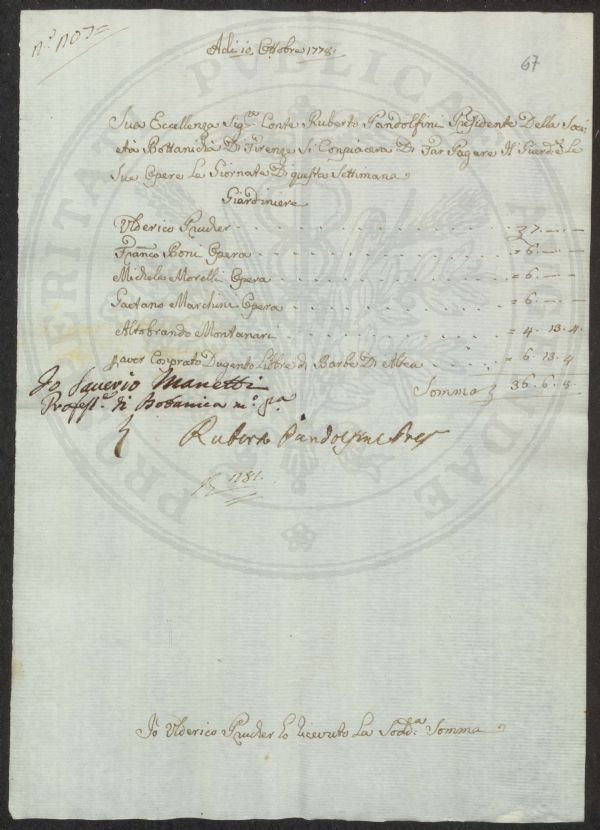 n.° 1107
67
Adi 10 Ottobre 1778
Sua Eccellenza Sig.re Conte Ruberto Pandolfini Presidente Della Soci=
età Bottanicha Di Firenze Si Conpiacera Di Far Pagare Al Giard.re e Le
Sue Opere Le Giornate Di questa Settimana
Giardiniere
Ulderico Prucher 7.—.—
Franco Boni Opera = 6.—.—
Michele Morelli Opera = 6.—.—
Gaetano Marchini Opera = 6.—.—
Altobrando Montanari = 4.13.4.
p aver Conprato Dugento Libbre di Barbe Di Altea = 6.13.4
Somma 36.6.8
Io Saverio Manetti
Profess.e di Botanica m.° pa
Ruberto Pandolfini Pres
1181.
PVBLICAE
PROSPERITATI
Io Ulderico Prucher ho ricevuto La Sodd.a Somma